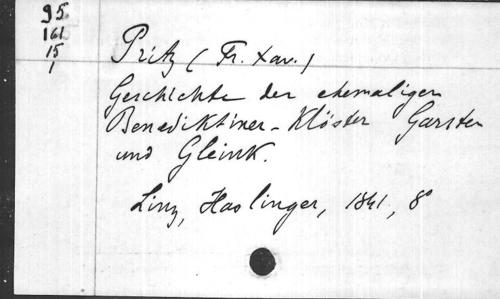 95
161
15
1
Pritz (Fr. Xav.)
Geschichte der ehemaligen
Benediktiner-Klöster Garsten
und Gleink.
Linz, Haslinger, 1841, 8°